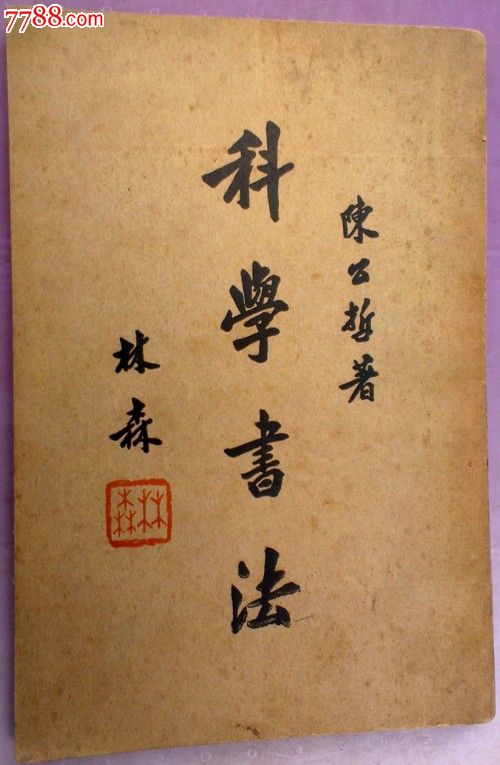 7788.com
陳公哲著
科學書法
林森
林森